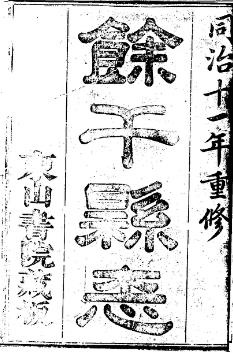 同治十一年重修
餘干縣志
東山書院藏板